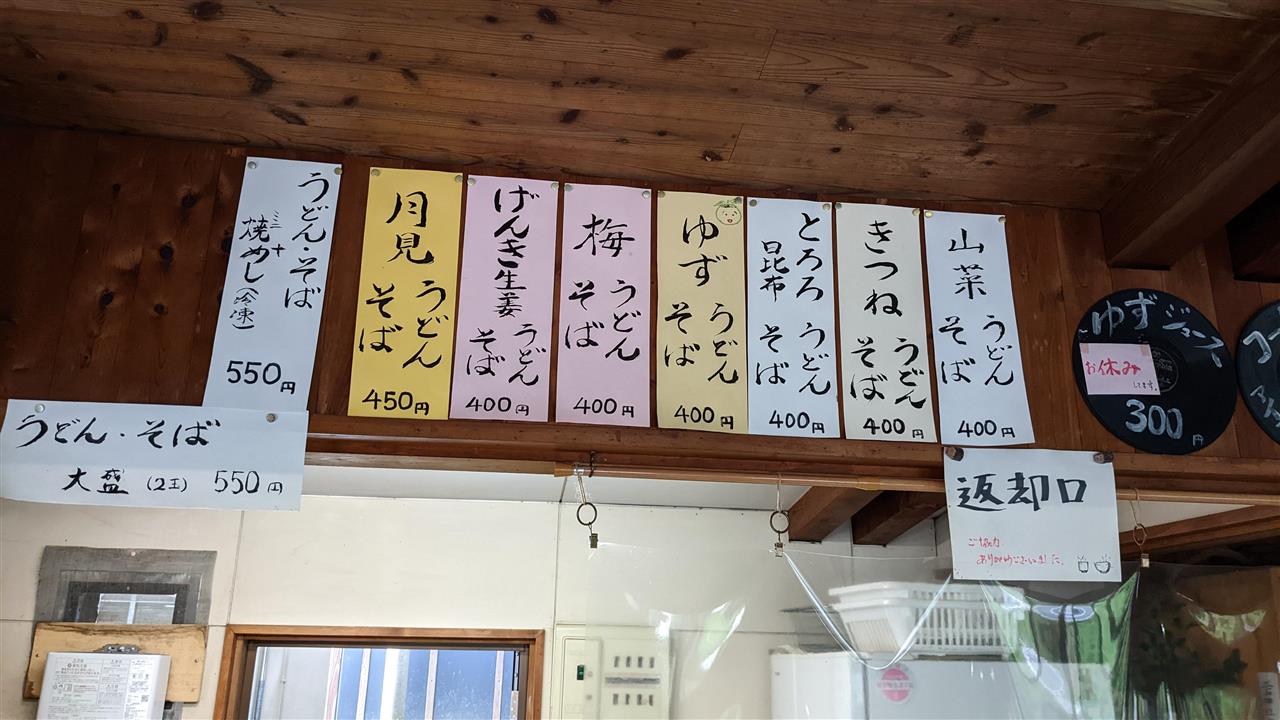 うどん・そば
ミニ
焼めし(冷凍)
550円
うどん・そば
大盛(2玉)550円
月見
うどん
そば
450円
げんき生姜
うどん
そば
400円
梅
うどん
そば
400円
ゆず
うどん
そば
400円
とろろ
昆布
うどん
そば
400円
きつね
うどん
そば
400円
山菜
うどん
そば
400円
ゆずジュース
お休み
してます。
300円
返却口
ご協力
ありがとうございました。